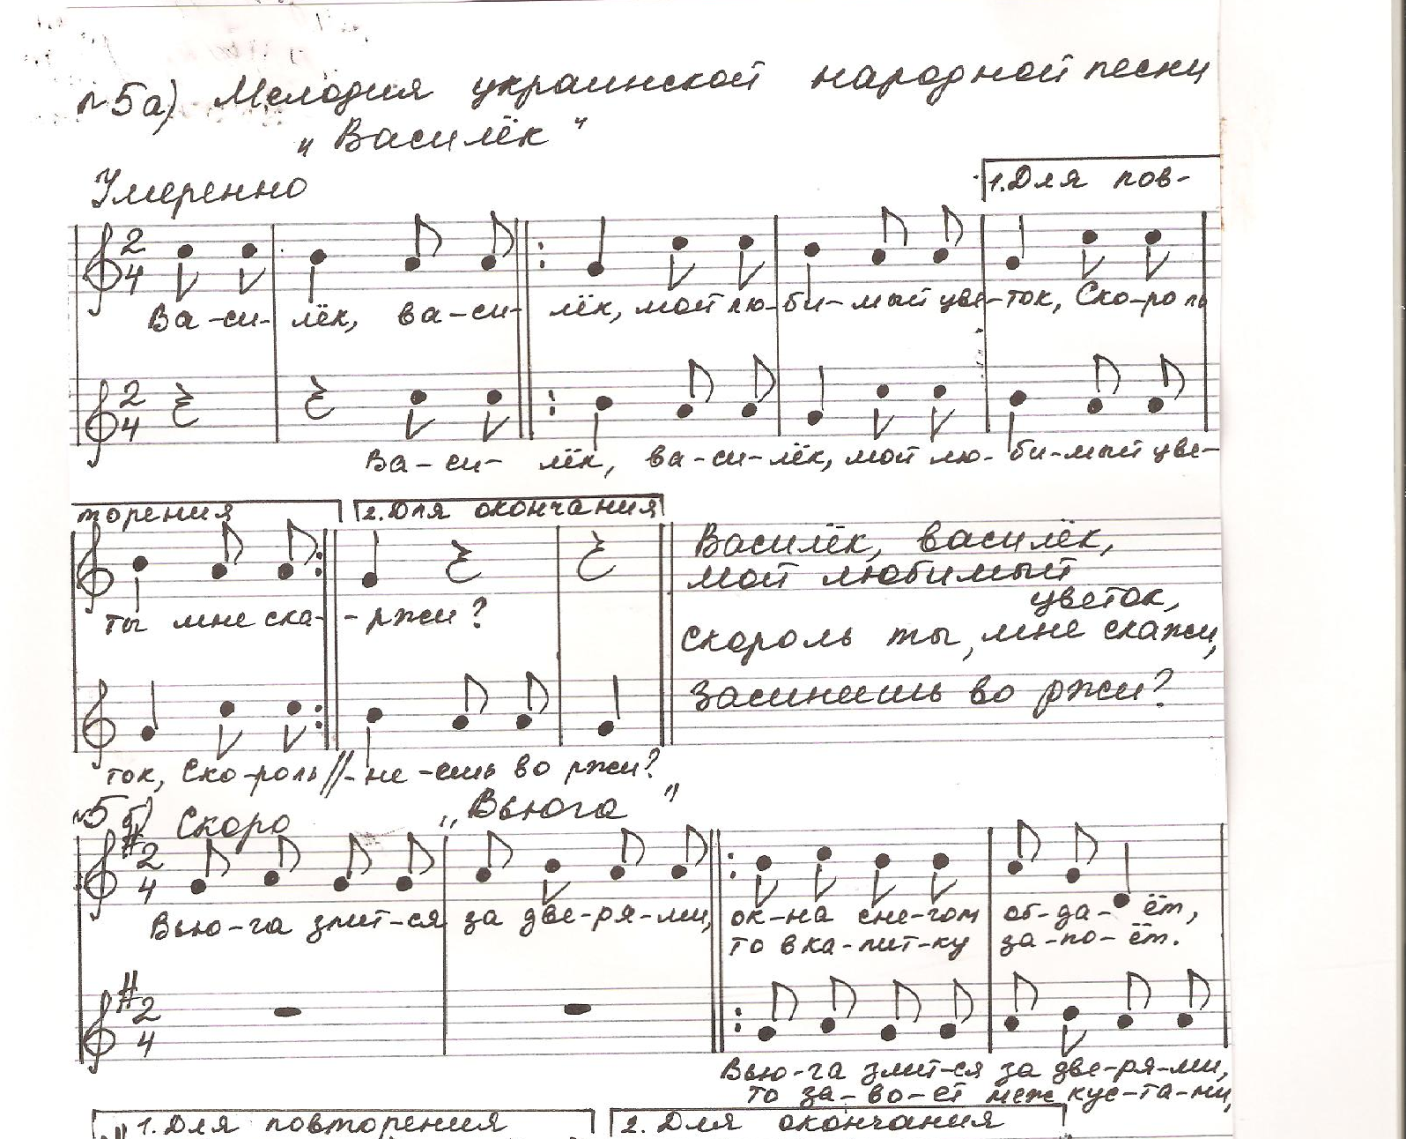 №5а) Мелодия украинской народной песни
„Василёк"
Умеренно
1. Для пов-
2 4
Ва-си- лёк, ва-си- лёк, мой лю-би-мый цве-ток, Ско-роль
2 4
Ва-си- лёк, ва-си-лёк, мой лю- би-мый цве-
торения 2. Для окончания
ты мне ска- -ржи?
Василёк, василёк,
мой любимый
цветок,
скороль ты, мне скажи,
засинеишь во ржи?
ток, Ско-роль//-не-ешь во ржи?
№5 б) Скоро „Вьюга"
2 4
Вью-га злит-ся за две-ря-ми, ок-на сне-гом об-да-ёт,
то в ка-лит-ку за-по-ёт.
2 4
Вью-га злит-ся за две-ря-ми,
то за-во-ет меж кус-та-ми,
1. Для повторения 2. Для окончания